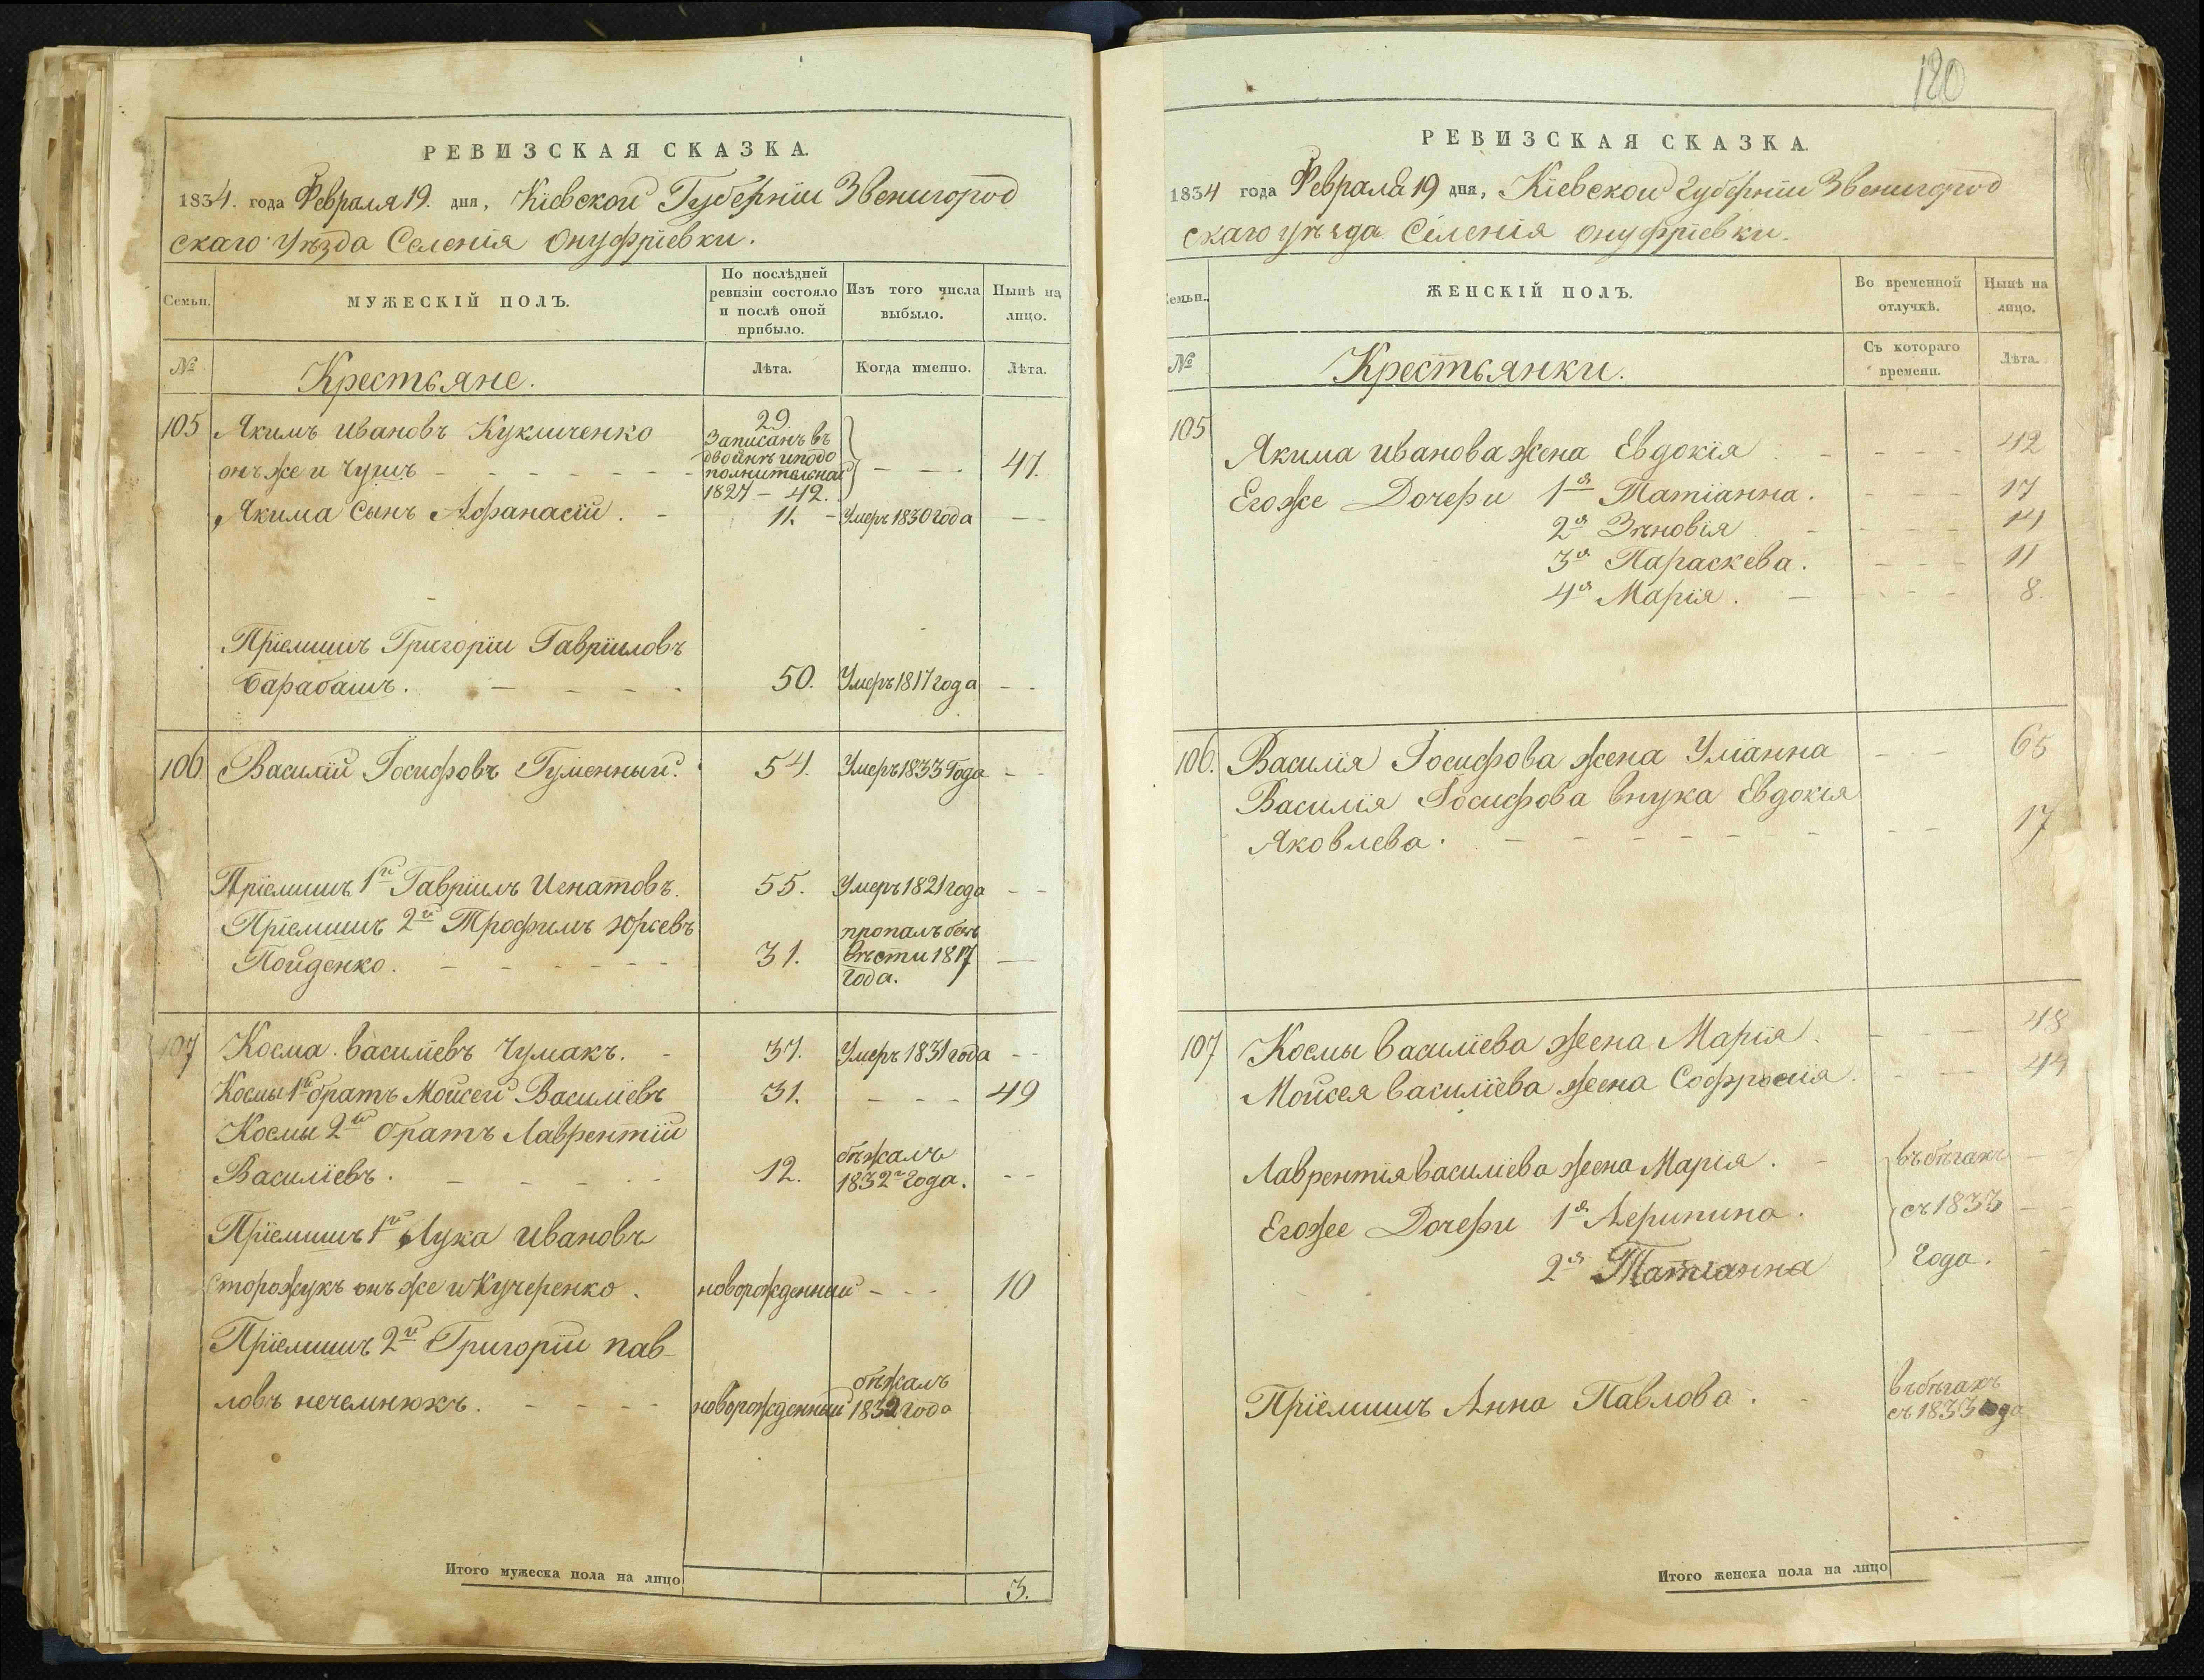 РЕВИЗСКАЯ СКАЗКА.
1834. года Февраля 19. дня, Кіевской Губерніи Звенигород
скаго Уѣзда Селенія Онуфріевки.
Семьи.
МУЖЕСКІЙ ПОЛЪ.
По послѣдней ревизіи состояло и послѣ оной прибыло.
Изъ того числа выбыло.
Нынѣ на лицо.
№
Крестьяне.
Лѣта.
Когда именно.
Лѣта.
105 Якимъ Ивановъ Кукличенко 29.
онъ же и Чушъ Записанъ въ двойнѣ и по до полнительной 1827 — 42. 47.
Якима Сынъ Афанасій. 11. Умеръ 1830 года
Пріемышъ Григорій Гавріиловъ
Барабашъ. 50. Умеръ 1817 года
106 Василій Іосифовъ Гуменный. 54. Умеръ 1833 Года
Пріемышъ 1й Гавріилъ Игнатовъ. 55. Умеръ 1821 года
Пріемышъ 2й Трофимъ Юрьевъ
Пойденко. 31. пропалъ безъ вѣсти 1817 года.
107 Косма Василіевъ Чумакъ. 37. Умеръ 1831 года
Космы 1й братъ Мойсей Василіевъ 31. 49
Космы 2й братъ Лаврентій
Василіевъ. 12. бѣжалъ 1832го года.
Пріемышъ 1й Лука Ивановъ
Сторожукъ онъ же и Кучеренко. новорожденный 10
Пріемышъ 2й Григорій Пав-
ловъ нечемнюкъ. новорожденный бѣжалъ 1832 года
Итого мужеска пола на лицо 3.
120
РЕВИЗСКАЯ СКАЗКА.
1834 года Февраля 19 дня, Кіевской Губерніи Звенигород
скаго уѣзда Селенія Онуфріевки.
Семьи.
ЖЕНСКІЙ ПОЛЪ.
Во временной отлучкѣ.
Нынѣ на лицо.
№
Крестьянки.
Съ котораго времени.
Лѣта.
105 Якима Иванова жена Евдокія 42
Егоже Дочери 1я Татіанна. 17
2я Зѣновія 14
3я Параскева. 11
4я Марія. 8.
106. Василія Іосифова жена Уліанна 65
Василія Іосифова внука Евдокія
Яковлева. 17
107 Космы Василіева жена Марія. 48
Мойсея Василіева жена Софронія. 44
Лаврентія Василіева жена Марія. въ бѣгахъ
Егоже Дочери 1я Агрипина. съ 1833
2я Татіанна года.
Пріемышъ Анна Павлова. въ бѣгахъ съ 1833 года
Итого женска пола на лицо